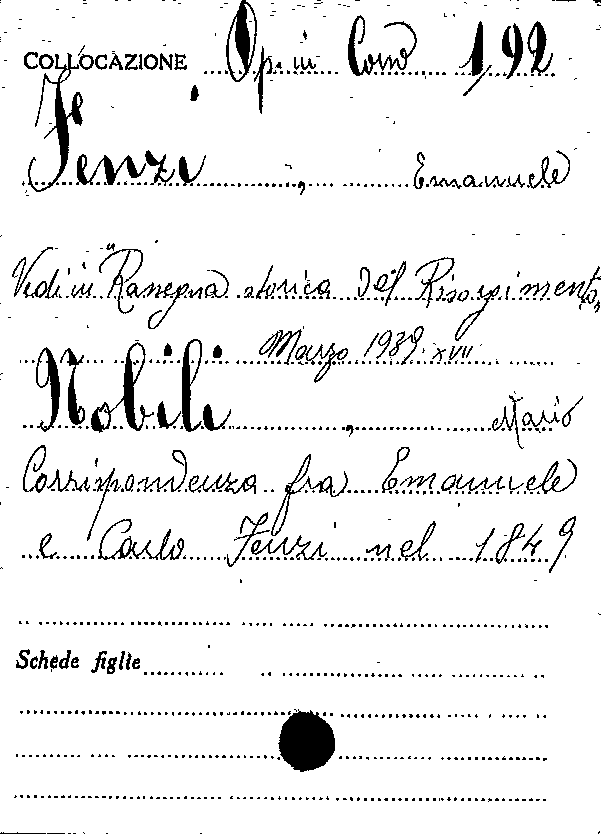 COLLOCAZIONE Op. in Cons 1,92
Fenzi, Emanuele
Vedi in "Rassegna storica del Risorgimento"
Marzo 1939. XVII
Nobili, Mario
Corrispondenza fra Emanuele
e Carlo Fenzi nel 1849
Schede figlie